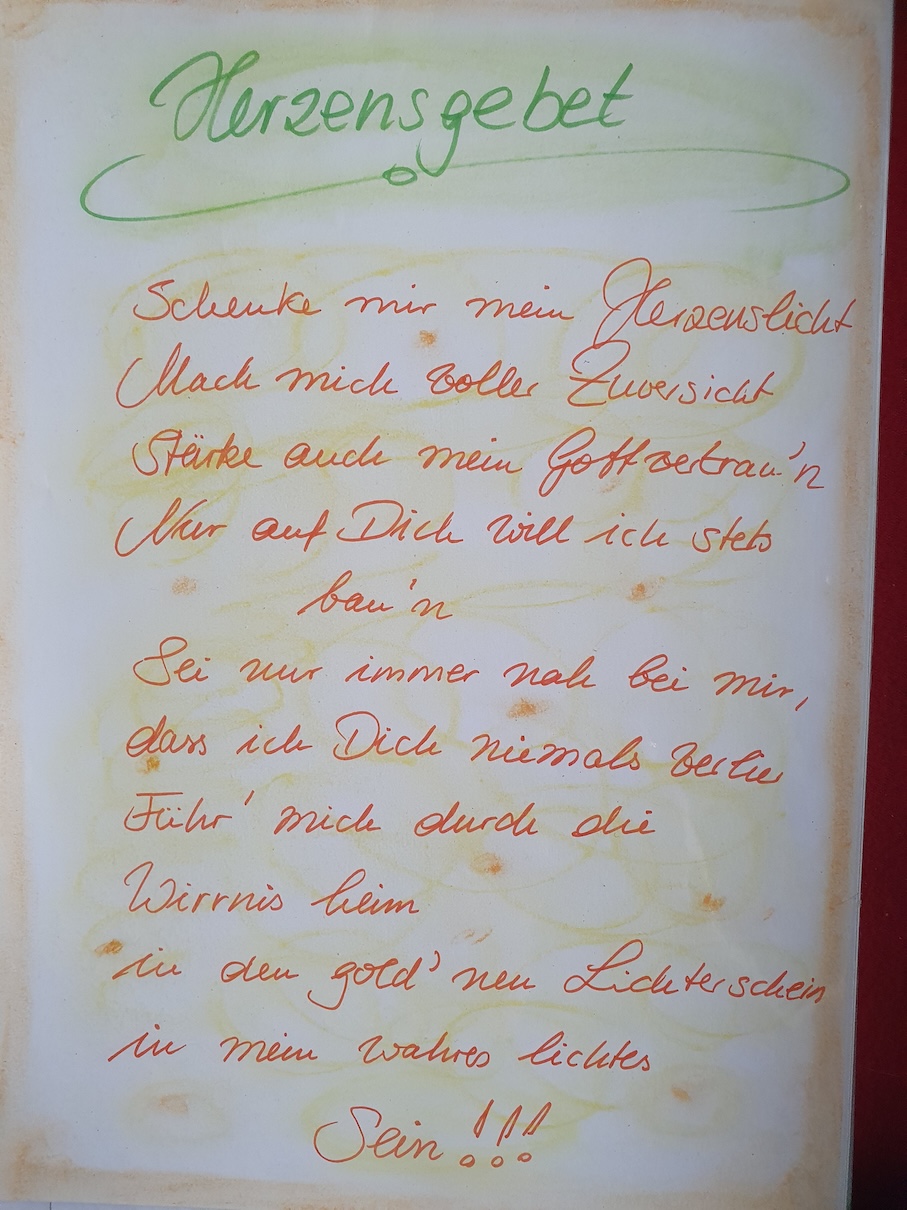 Herzensgebet
Schenke mir mein Herzenslicht
Mach mich voller Zuversicht
Stärke auch mein Gottvertrau'n
Nur auf Dich will ich stets
bau'n
Sei nur immer nah bei mir,
dass ich Dich niemals verlier
Führ' mich durch die
Wirrnis heim
in den gold'nen Lichterschein
in mein wahres lichtes
Sein!!!